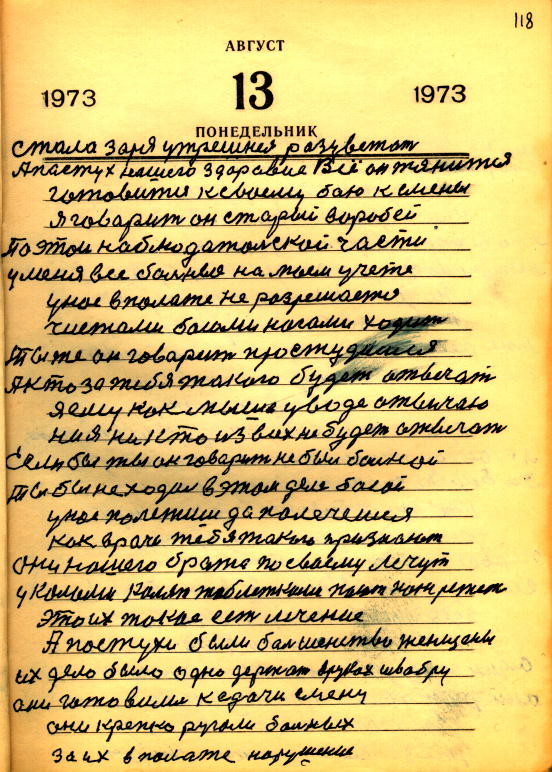 118
АВГУСТ
1973 13 1973
ПОНЕДЕЛЬНИК
стала заря утрешнея разцветат
Апастух нашего здаравие Всё он тянится
готовится ксвоему баю к смены
я говарит он старый воробей
По этои наблюдатолской части
у меня все болные на моем учете
унас вполате не розрешаетса
чистоми босыми ногами ходит
Ты же он говарит простудишся
Акто за тебя такого будет отвечат
я ему как мыш уводе отвичаю
ния никто из вас не будет отвечат
Если бы ты он говарит не был болной
Ты бы неходил вэтом деле босой
унас полежиш да полечешся
как врачи тебя такого признают
они нашего брата посвоему лечут
уколоми таблетками
этоих такое ест лечение
А постухи были болшенство женщаны
их дело было одно держат вруках швабру
они готовилис ксдачи смену
они крепко ругали болных
за их вполате нарушение